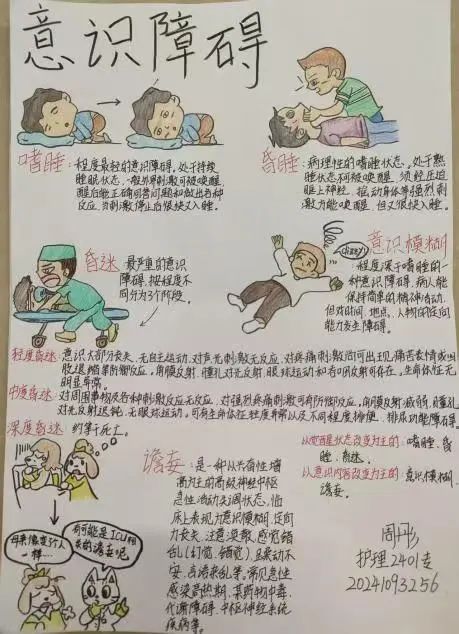 意识障碍
嗜睡:程度最轻的意识障碍。处于持续
睡眠状态,一般外界刺激可被唤醒,
醒后能正确回答问题和做出各种
反应,当刺激停止后很快又入睡。
昏睡:病理性的嗜睡状态。处于熟
睡状态,不可被唤醒,须经压迫
眶上神经、摇动身体等强烈刺
激方能唤醒,但又很快入睡。
昏迷
最严重的意识
障碍,按程度不
同分为3个阶段。
dizzy
意识模糊
:程度深于嗜睡的一
种意识障碍,病人能
保持简单的精神活动,
但对时间、地点、人物的定向
能力发生障碍。
轻度昏迷:意识大部分丧失,无自主运动,对声光刺激无反应,对疼痛刺激尚可出现痛苦表情或回
肢退缩等防御反应。角膜反射、瞳孔对光反射、眼球运动和吞咽反射可存在。生命体征无
明显异常。
中度昏迷:对周围事物及各种刺激反应无反应,对强烈疼痛刺激可有防御反应,角膜反射减弱,瞳孔
对光反射迟钝,无眼球运动,可有生命体征轻度异常以及不同程度排便、排尿功能障碍等。
深度昏迷:约等于死亡。
以觉醒状态改变为主的:嗜睡,昏
睡,昏迷。
以意识内容改变为主的:意识模糊,
谵妄。
谵妄:是一种以兴奋性增
高为主的高级神经中枢
急性活动失调状态,临
床上表现为意识模糊、定向
力丧失、注意涣散、感觉错
乱(幻觉、错觉)、躁动不
安、言语杂乱等,常见急性
感染高热期、某药物中毒、
代谢障碍、中枢神经系统
疾病等。
母亲像变个人
一样…
有可能是ICU相
关的谵妄吧
周丹彤
护理2401专
20241093256